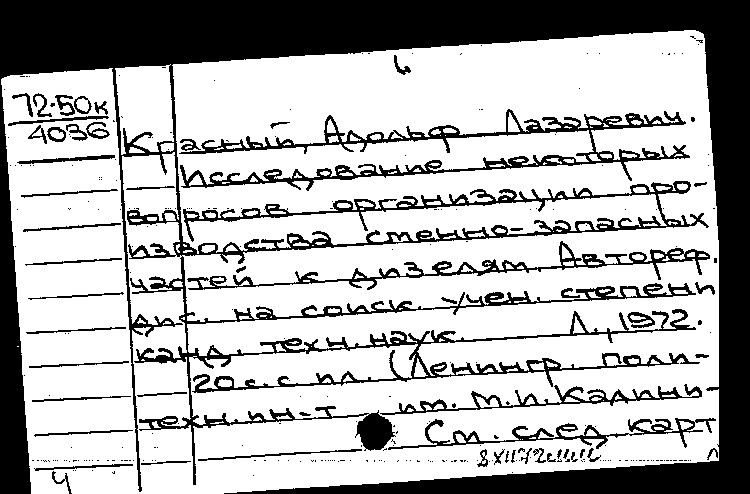 72-50к
4036
Красный, Адольф Лазаревич.
Исследование некоторых
вопросов организации про-
изводства сменно-запасных
частей к дизелям. Автореф.
дис. на соиск. учен. степени
канд. техн. наук. Л., 1972.
20 с. с ил. (Ленингр. поли-
техн. ин-т им. М.И. Калини-
См. след. карт